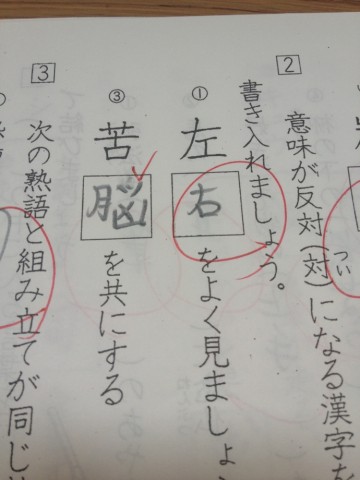 2
意味が反対(対)になる漢字を
つい
書き入れましょう。
①
左右をよく見ましょ
③
苦脳を共にする
3
次の熟語と組み立てが同じ